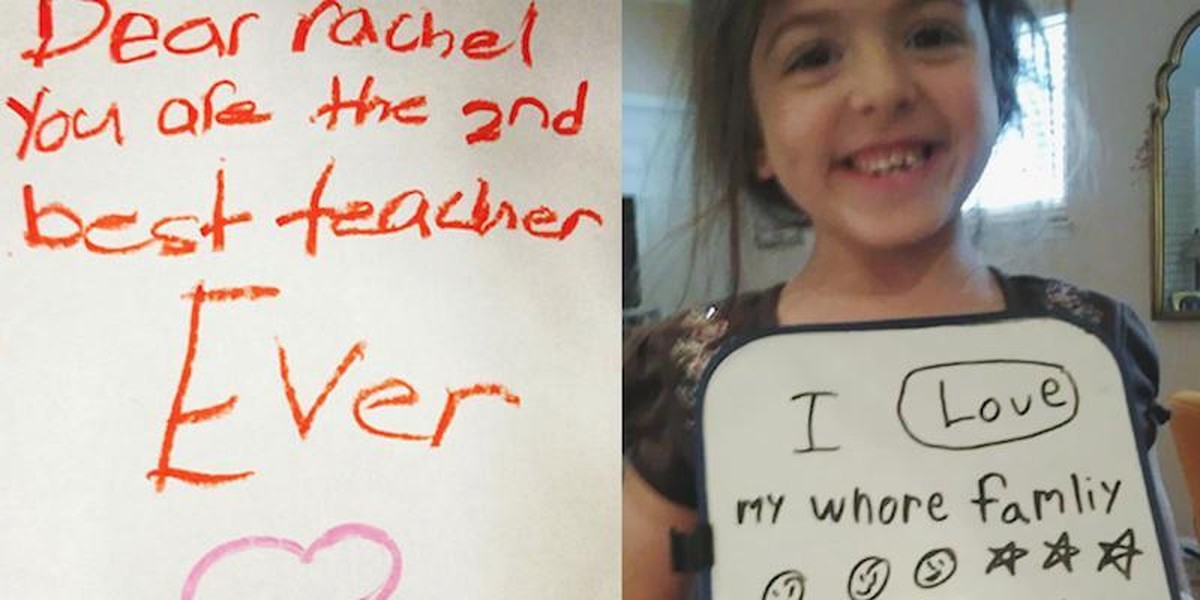 Dear rachel
You are the 2nd
best teacher
Ever
I Love
my whore famliy